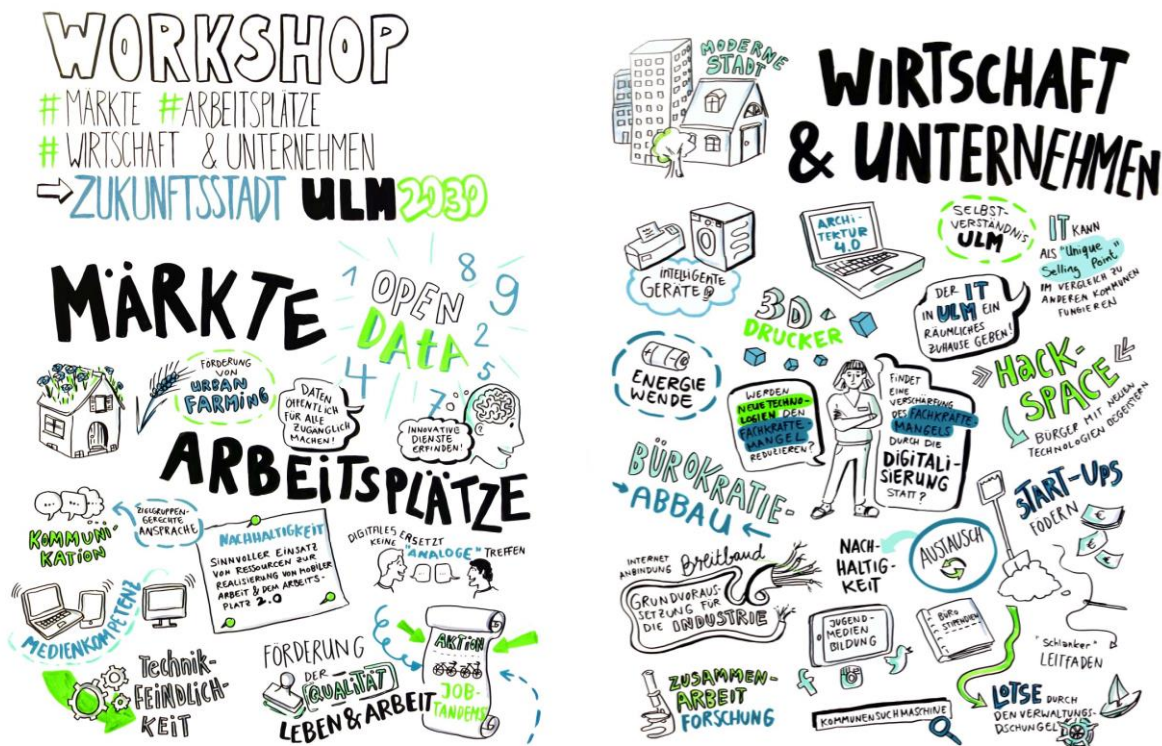 WORKSHOP
# MÄRKTE #ARBEITSPLÄTZE
# WIRTSCHAFT & UNTERNEHMEN
ZUKUNFTSSTADT ULM 2030
MÄRKTE
OPEN
DATA
1
8
9
2
5
4
7
FÖRDERUNG
VON
URBAN
FARMING
DATEN
ÖFFENTLICH
FÜR ALLE
ZUGÄNGLICH
MACHEN!
INNOVATIVE
DIENSTE
ERFINDEN!
ARBEITSPLÄTZE
KOMMUNI-
KATION
ZIELGRUPPEN-
GERECHTE
ANSPRACHE
NACHHALTIGKEIT
SINNVOLLER EINSATZ
VON RESSOURCEN ZUR
REALISIERUNG VON MOBILER
ARBEIT & DEM ARBEITS-
PLATZ 2.0
DIGITALES ERSETZT
KEINE "ANALOGE" TREFFEN
MEDIENKOMPETENZ
Technik-
FEINDLICH-
KEIT
FÖRDERUNG
DER
QUALITÄT
LEBEN & ARBEIT
AKTION
JOB-
TANDEMS
MODERNE
STADT
WIRTSCHAFT
& UNTERNEHMEN
INTELLIGENTE
GERÄTE
ARCHI-
TEKTUR
4.0
SELBST-
VERSTÄNDNIS
ULM
IT KANN
ALS "Unique
Selling Point"
IM VERGLEICH ZU
ANDEREN KOMMUNEN
FUNGIEREN
3D-
DRUCKER
DER IT
IN ULM EIN
RÄUMLICHES
ZUHAUSE GEBEN!
ENERGIE
WENDE
WERDEN
NEUE TECHNO-
LOGIEN DEN
FACHKRÄFTE-
MANGEL
REDUZIEREN?
FINDET
EINE
VERSCHÄRFUNG
DES FACHKRÄFTE-
MANGELS
DURCH DIE
DIGITALI-
SIERUNG
STATT?
HACK-
SPACE
BÜRGER MIT NEUEN
TECHNOLOGIEN BEGEISTERN
BÜROKRATIE-
ABBAU
START-UPS
FÖDERN
€
€
€
INTERNET
ANBINDUNG Breitband
GRUNDVORAUS-
SETZUNG FÜR
DIE INDUSTRIE
NACH-
HALTIG-
KEIT
AUSTAUSCH
JUGEND-
MEDIEN
BILDUNG
BÜRO
STIPENDIEN
"Schlanker"
LEITFADEN
ZUSAMMEN-
ARBEIT
FORSCHUNG
f
KOMMUNENSUCHMASCHINE
LOTSE DURCH
DEN VERWALTUNGS-
DSCHUNGEL